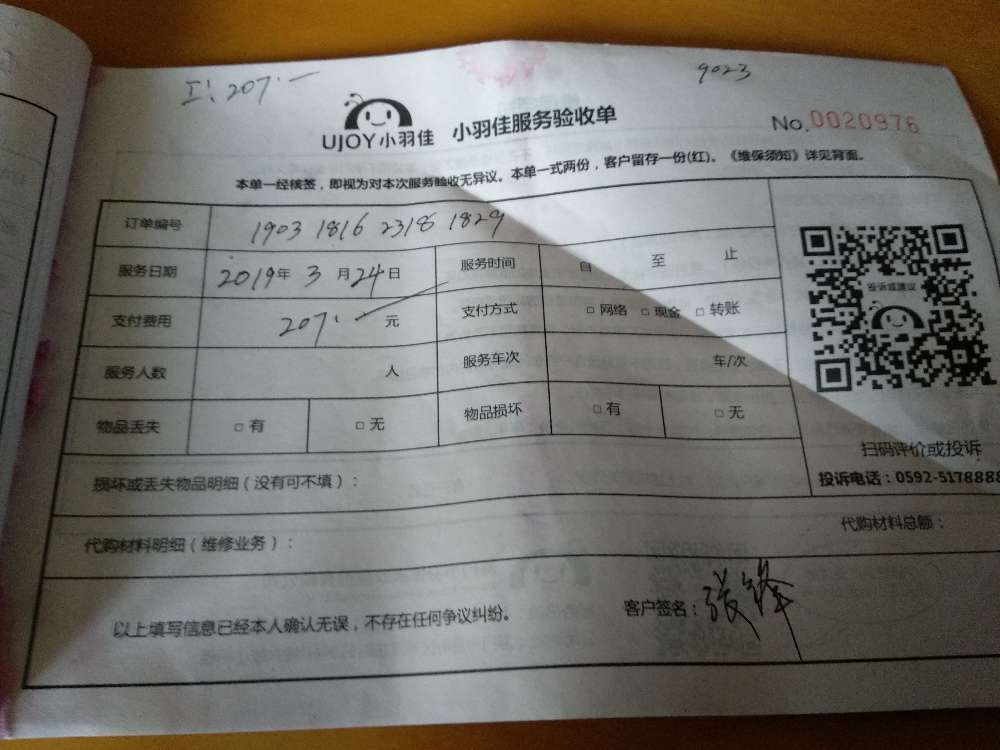 工:207.一
9023
UJOY小羽佳 小羽佳服务验收单
No.0020976
本单一经核签，即视为对本次服务验收无异议。本单一式两份，客户留存一份(红)。《维保须知》详见背面。
订单编号 1903 1816 2318 1829
服务日期 2019年 3月24日 服务时间 自 至 止
投诉或建议
支付费用 207.一 元 支付方式 □ 网络 □ 现金 □ 转账
服务人数 人 服务车次 车/次
物品丢失 □ 有 □ 无 物品损坏 □ 有 □ 无
扫码评价或投诉
投诉电话：0592-5178888
损坏或丢失物品明细（没有可不填）：
代购材料明细（维修业务）： 代购材料总额：
以上填写信息已经本人确认无误，不存在任何争议纠纷。 客户签名：张锋